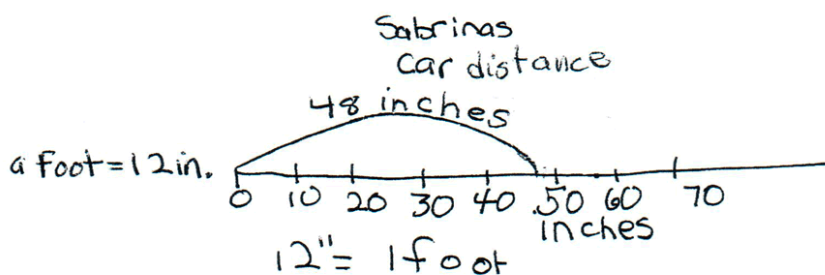 Sabrinas
Car distance
48 inches
a foot = 12 in.
0 10 20 30 40 50 60 70
inches
12" = 1 foot